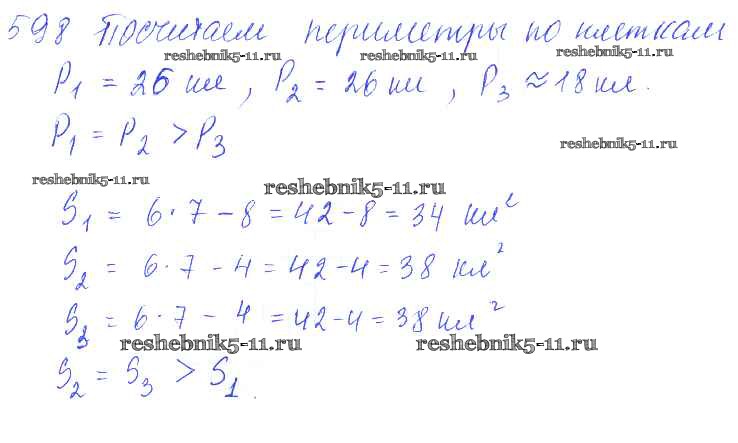 598 Посчитаем периметры по клеткам
reshebnik5-11.ru reshebnik5-11.ru reshebnik5-11.ru
P₁ = 26 кл, P₂ = 26 кл, P₃ ≈ 18 кл.
P₁ = P₂ > P₃
reshebnik5-11.ru
reshebnik5-11.ru
reshebnik5-11.ru
S₁ = 6·7 - 8 = 42 - 8 = 34 кл²
S₂ = 6·7 - 4 = 42 - 4 = 38 кл²
S₃ = 6·7 - 4 = 42 - 4 = 38 кл²
reshebnik5-11.ru reshebnik5-11.ru
S₂ = S₃ > S₁.